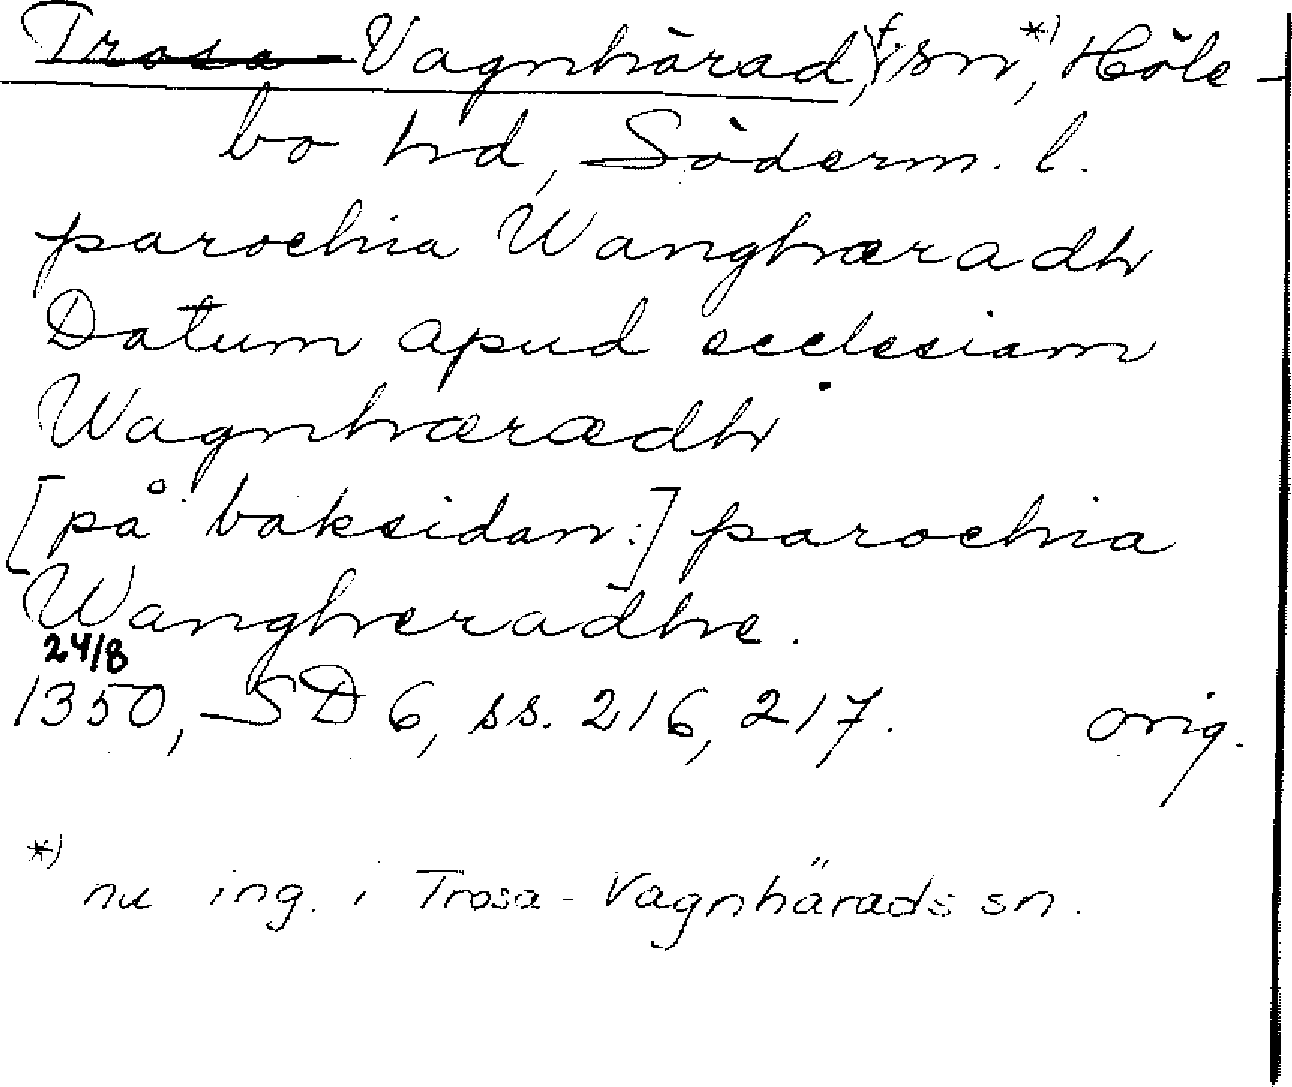 Trosa-Vagnhärad, f. sn *), Höle-
bo hd, Söderm. l.
parochia Wanghæradh
Datum apud ecclesiam
Wagnhærædh
[på baksidan:] parochia
Wangheradhe.
24/8
1350, SD 6, ss. 216, 217. orig.
*) nu ing. i Trosa-Vagnhärads sn.